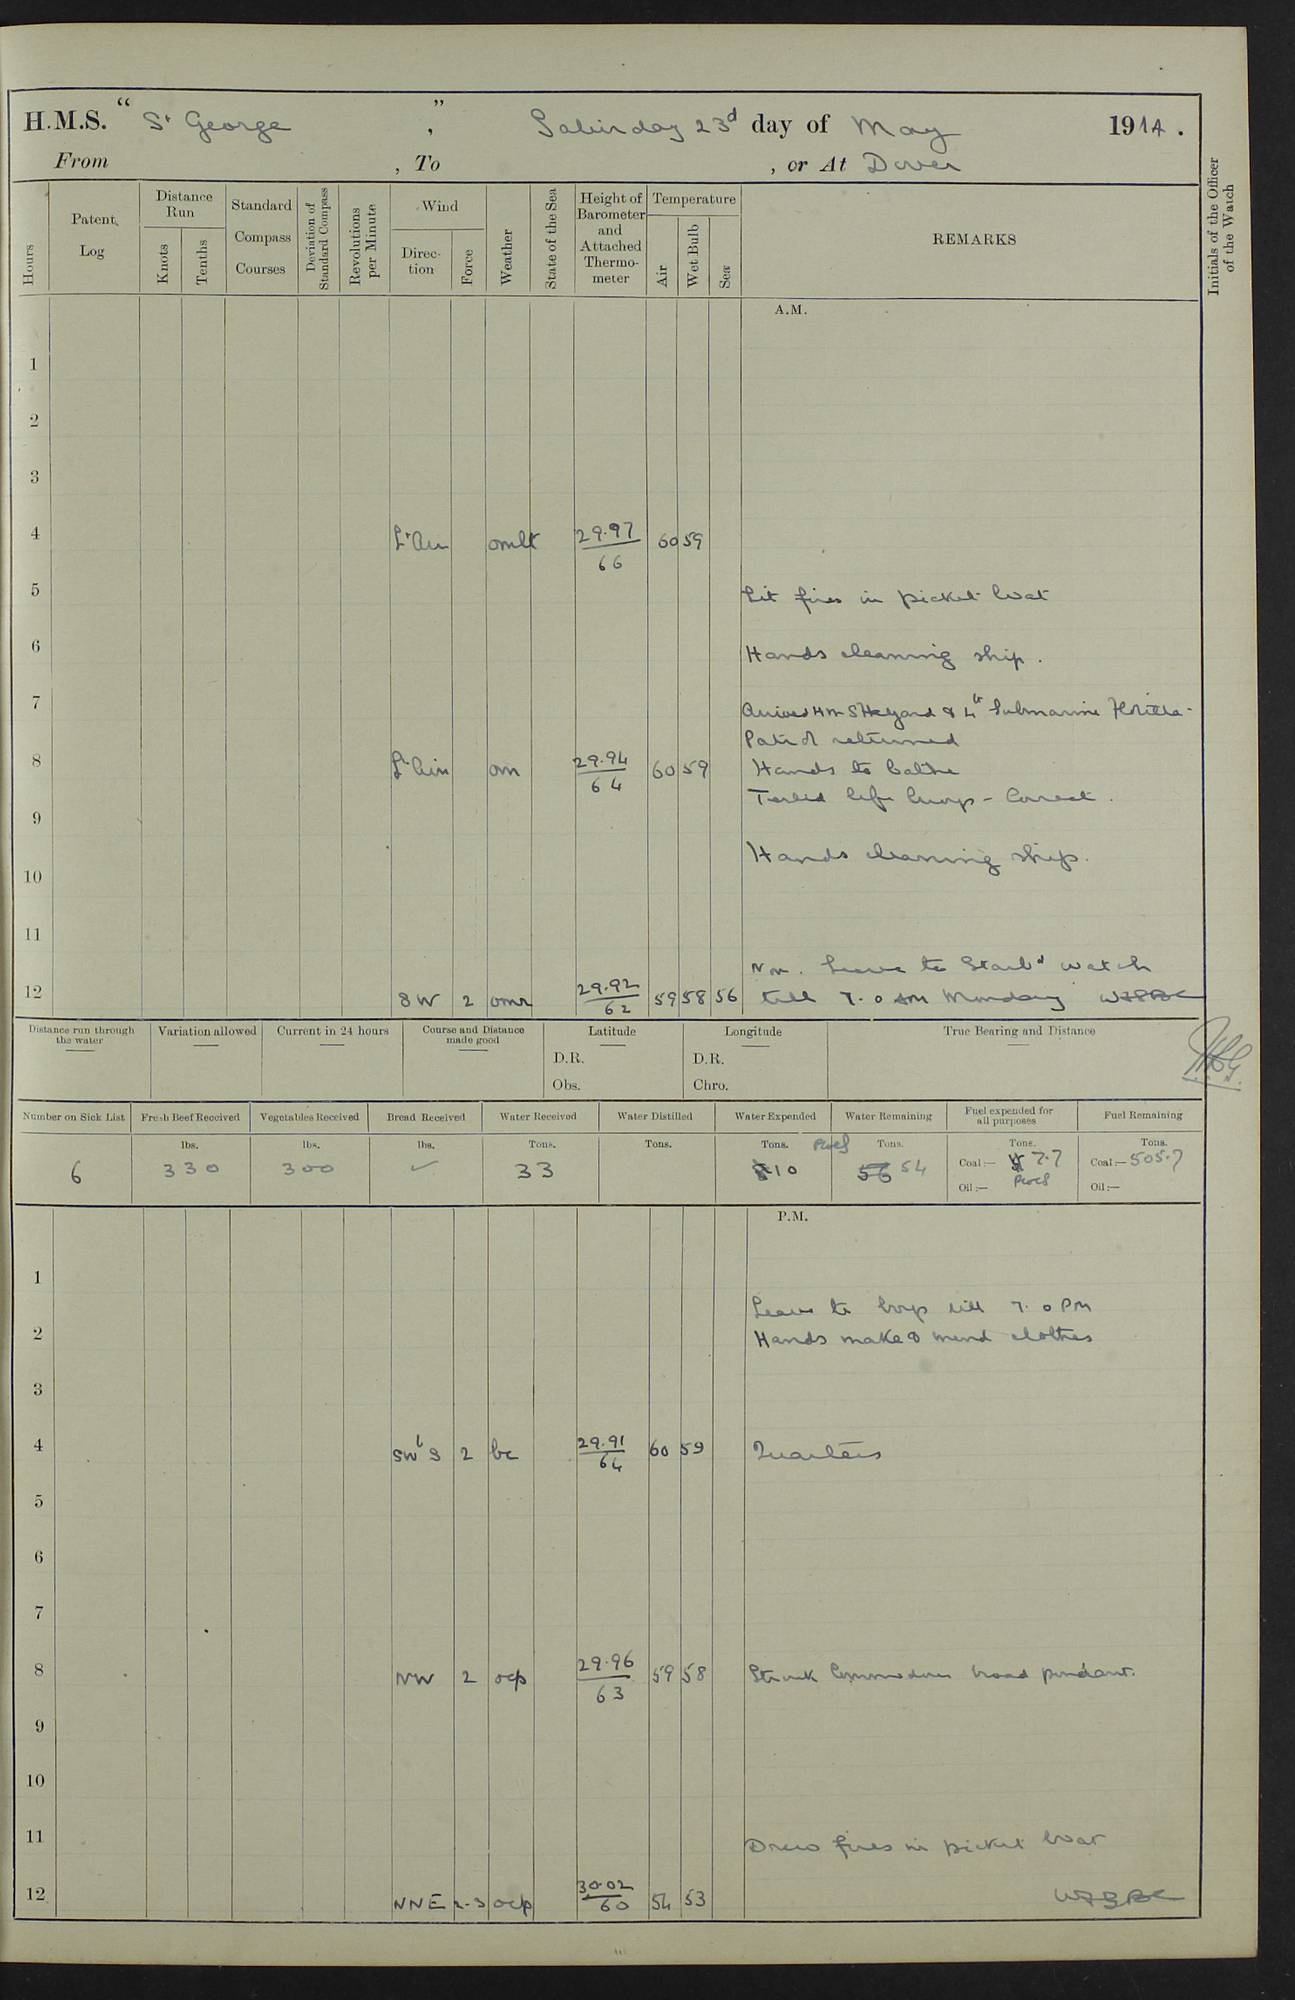 H.M.S. "St George", Saturday 23d day of May 1914.
From , To , or At Dover
Hours
Patent Log
Distance Run
Knots
Tenths
Standard Compass Courses
Deviation of Standard Compass
Revolutions per Minute
Wind
Direction
Force
Weather
State of the Sea
Height of Barometer and Attached Thermometer
Temperature
Air
Wet Bulb
Sea
REMARKS
Initials of the Officer of the Watch
A.M.
1
2
3
4 Lt Air omlt 29.97 66 60 59
5 Lit fires in picket boat
6 Hands cleaning ship.
7
Arrived HMS Hazard & 4th Submarine Flotilla-
Patrol returned
8 Lt Airs om 29.94 64 60 59 Hands to bathe
Tested life buoys - Correct.
9
Hands cleaning ship.
10
11
Nn. Leave to Starbd watch
12 SW 2 omr 29.92 62 59 58 56 till 7.0 AM Monday
Distance run through the water
Variation allowed
Current in 24 hours
Course and Distance made good
Latitude
D.R.
Obs.
Longitude
D.R.
Chro.
True Bearing and Distance
Number on Sick List
6
Fresh Beef Received
lbs.
330
Vegetables Received
lbs.
300
Bread Received
lbs.
✓
Water Received
Tons.
33
Water Distilled
Tons.
Water Expended
Tons.
10
Water Remaining
Tons.
56 54
Fuel expended for all purposes
Tons.
Coal:— 7.7
Oil:—
Fuel Remaining
Tons.
Coal:— 505.7
Oil:—
P.M.
1
Leave to boys till 7.0 PM
2 Hands make & mend clothes
3
4 SWbS 2 bc 29.91 64 60 59 Quarters
5
6
7
8 NW 2 ocp 29.96 63 59 58 Struck Commodores broad pendant.
9
10
11 Drew fires in picket boat
12 NNE 2-3 ocp 30.02 60 54 53